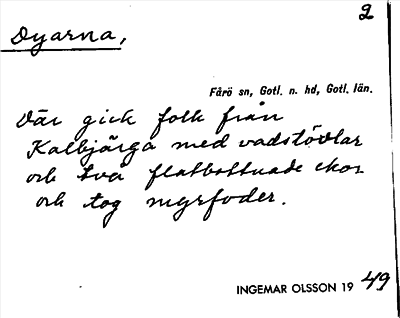 2
Dyarna,
Fårö sn, Gotl. n. hd, Gotl. län.
Där gick folk från
Kalbjärga med vadstövlar
och två flatbottnade ekor
och tog myrfoder.
INGEMAR OLSSON 19 49